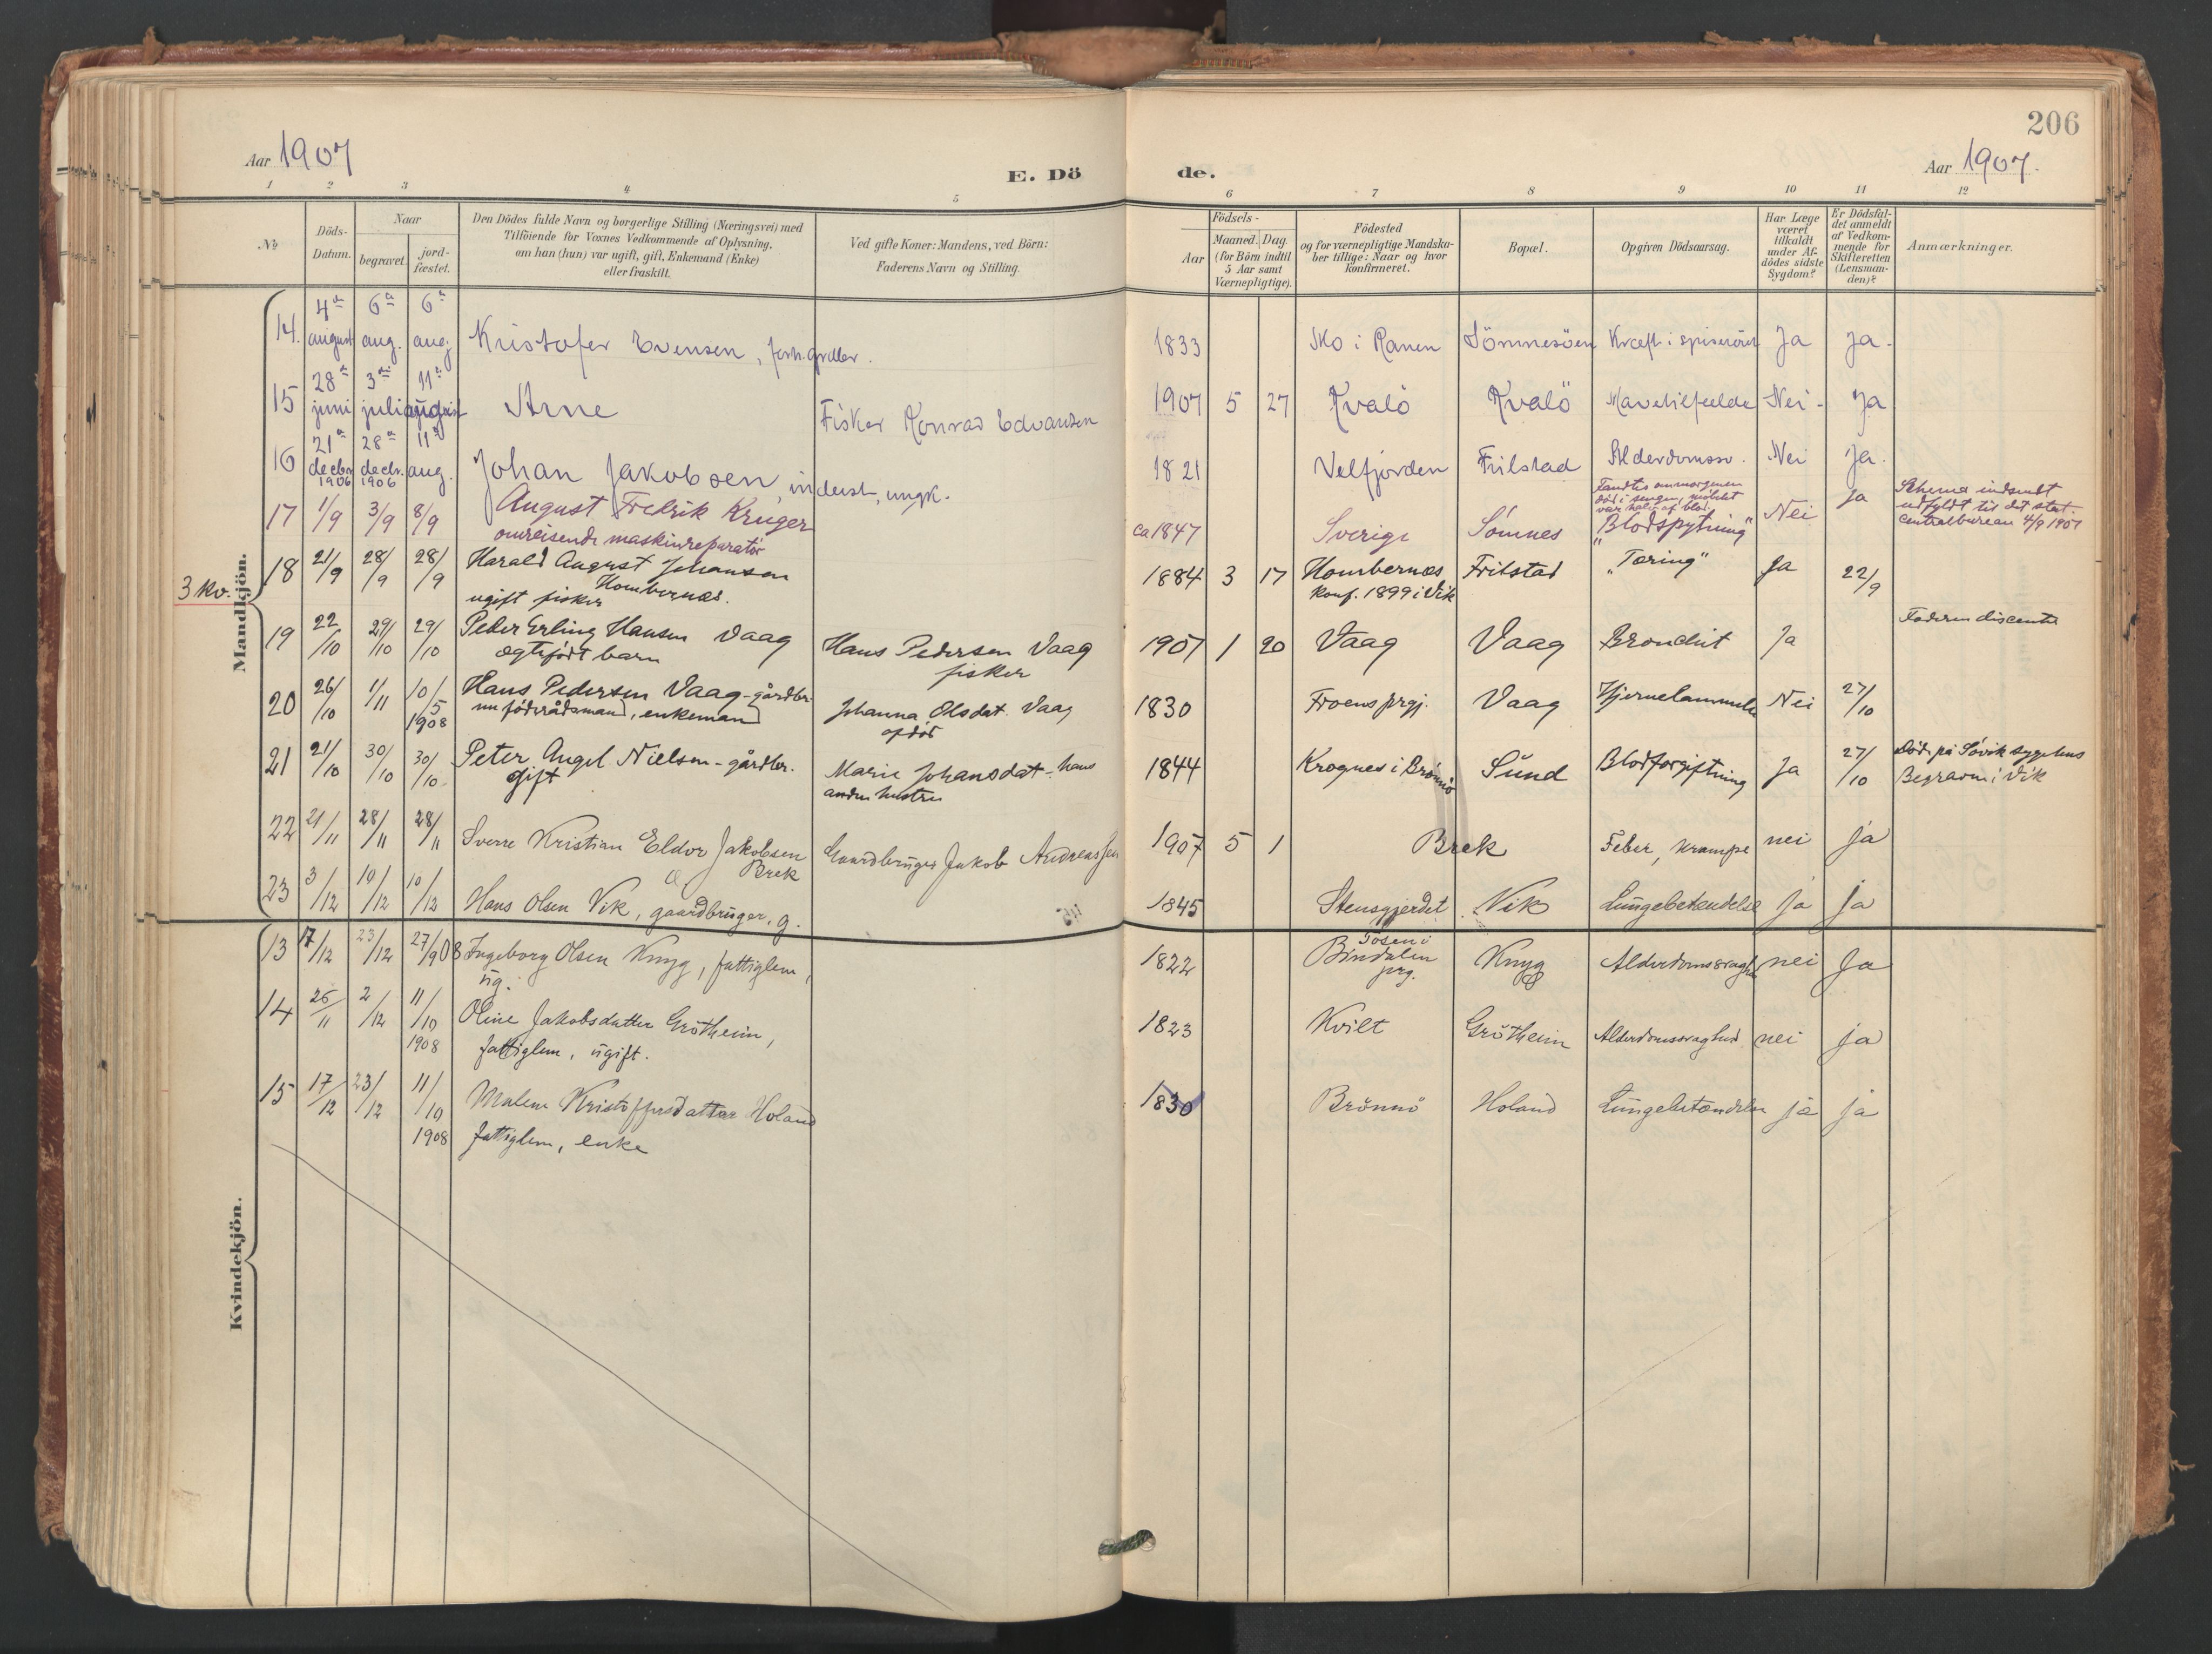 206
Aar 1907
E. Dö
de.
Aar 1907.
1 2 3 4 5 6 7 8 9 10 11 12
No
Döds-
Datum.
Naar
begravet.
jord-
fæstet.
Den Dödes fulde Navn og borgerlige Stilling (Næringsvei) med
Tilföiende for Voxnes Vedkommende af Oplysning,
om han (hun) var ugift, gift, Enkemand (Enke)
eller fraskilt.
Ved gifte Koner: Mandens, ved Börn:
Faderens Navn og Stilling.
Födsels-
Aar
Maaned. Dag
(for Börn indtil
5 Aar samt
Værnepligtige).
Födested
og for værnepligtige Mandska-
ber tillige: Naar og hvor
konfirmeret.
Bopæl.
Opgiven Dödsaarsag.
Har Læge
været
tilkaldt
under Af-
dödes sidste
Sygdom?
Er Dödsfal-
det anmeldt
af Vedkom-
mende for
Skifteretten
(Lensman-
den)?
Anmærkninger.
Mandkjön.
3 kv.
14. 4de august 6te aug. 6te aug Kristofer Evensen, forh. grdbr. 1833 Mo i Ranen Sömnesöen Kræft i spiseröret Ja Ja.
15 28de juni 3die juli 11te august Arne Fisker Konrad Edvardsen 1907 5 27 Kvalö Kvalö Mavetilfælde Nei - Ja
16 21de decbr. 1906 28de decbr. 1906 11te aug. Johan Jakobsen, inderst, ungk. 1821 Velfjorden Frilstad Alderdomssv. Nei Ja.
17 1/9 3/9 8/9 August Fredrik Krüger
omreisende maskinreparatör
ca 1847 Sverige Sömnes
Fandtes om morgenen
död i sengen, gulvet
var fuldt af blod.
"Blodspytning" Nei ja
Schema indsendt
udfyldt til det stat.
centralbureau 4/9 1907
18 21/9 28/9 28/9 Harald August Johansen
Hombornæs.
ugift fisker
1884 3 17 Hombornæs
konf. 1899 i Vik
Frilstad "Tæring" Ja 22/9
19 22/10 29/10 29/10 Peder Erling Hansen Vaag
ægtefödt barn
Hans Pedersen Vaag
fisker
1907 1 20 Vaag Vaag Bronchit Ja Faderen dissenter
20 26/10 1/11 10/5 1908 Hans Pedersen Vaag - gårdbr.
nu föderådsmand, enkemand
Johanna Olsdat. Vaag
afdöd
1830 Froens prgj. Vaag Hjernelammelse Nei 27/10
21 21/10 30/10 30/10 Peter Angel Nielsen - gårdbr.
gift
Marie Johansdat - hans
anden hustru
1844 Krognes i Brönnö Sund Blodforgiftning Ja 27/10
Död på Sövik sygehus
Begravne i Vik
22 21/11 28/11 28/11 Sverre Kristian Eldor Jakobsen
Brek
Gaardbruger Jakob Andreassen
1907 5 1 Brek Feber, krampe nei ja
23 3/12 10/12 10/12 Hans Olsen Vik, gaardbruger, g. 1845 Stensgjerdet Vik Lungebetændelse ja ja
Kvindekjön.
13 17/12 23/12 27/9 08 Ingeborg Olsen Knyg, fattiglem,
ug.
1822 Tosen i
Bindalen
prg.
Knyg Alderdomssvaghed nei Ja
14 25/11 2/12 11/10 1908 Oline Jakobsdatter Grötheim,
fattiglem, ugift.
1823 Kvilt Grötheim Alderdomssvaghed nei ja
15 17/12 23/12 11/10 1908 Malene Kristoffersdatter Holand
fattiglem, enke
1830 Brönnö Holand Lungebetændelse ja ja